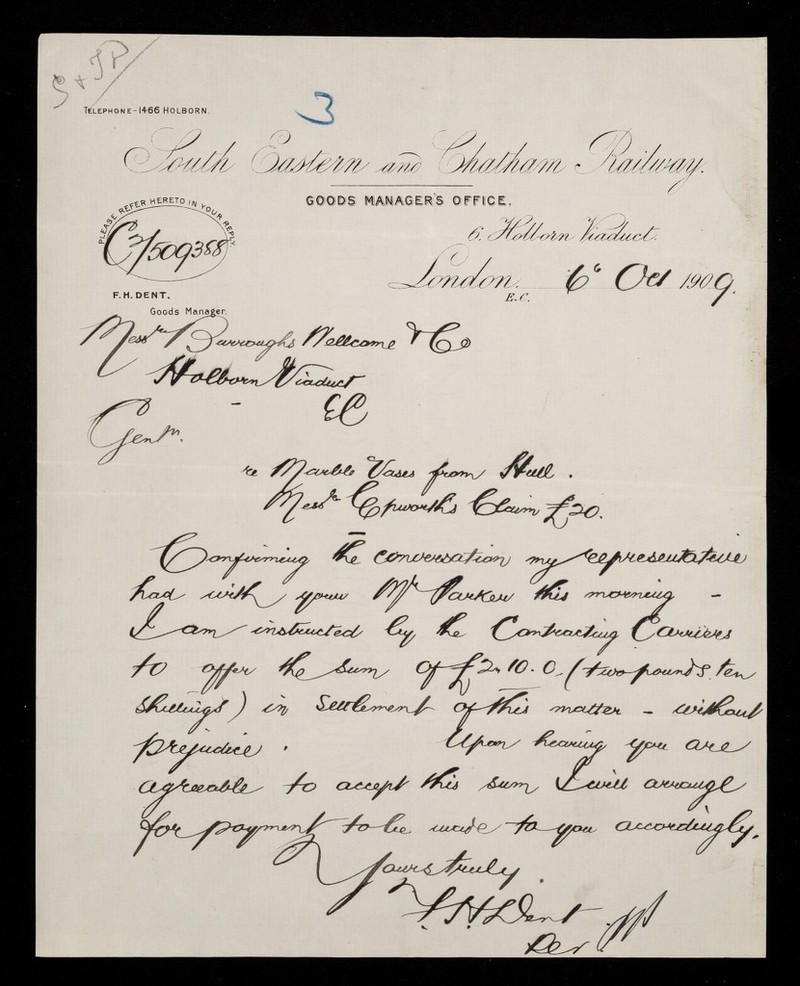 S & TP
TELEPHONE-1466 HOLBORN.
3
South Eastern and Chatham Railway.
GOODS MANAGER'S OFFICE.
PLEASE REFER HERETO IN YOUR REPLY.
C2/509388
6, Holborn Viaduct.
London. 6th Oct 1909.
E.C.
F.H. DENT.
Goods Manager.
Messrs Burroughs Wellcome & Co
Holborn Viaduct
EC
Gentn.
re Marble Vases from Hull.
Messrs Epworth's Claim £20.
Confirming the conversation my representative
had with your Mr Parker this morning -
I am instructed by the Contracting Carriers
to offer the sum of £2.10.0. (two pounds ten
shillings) in settlement of this matter - without
prejudice. Upon hearing you are
agreeable to accept this sum I will arrange
for payment to be made to you accordingly.
Yours truly.
F.H. Dent
Per